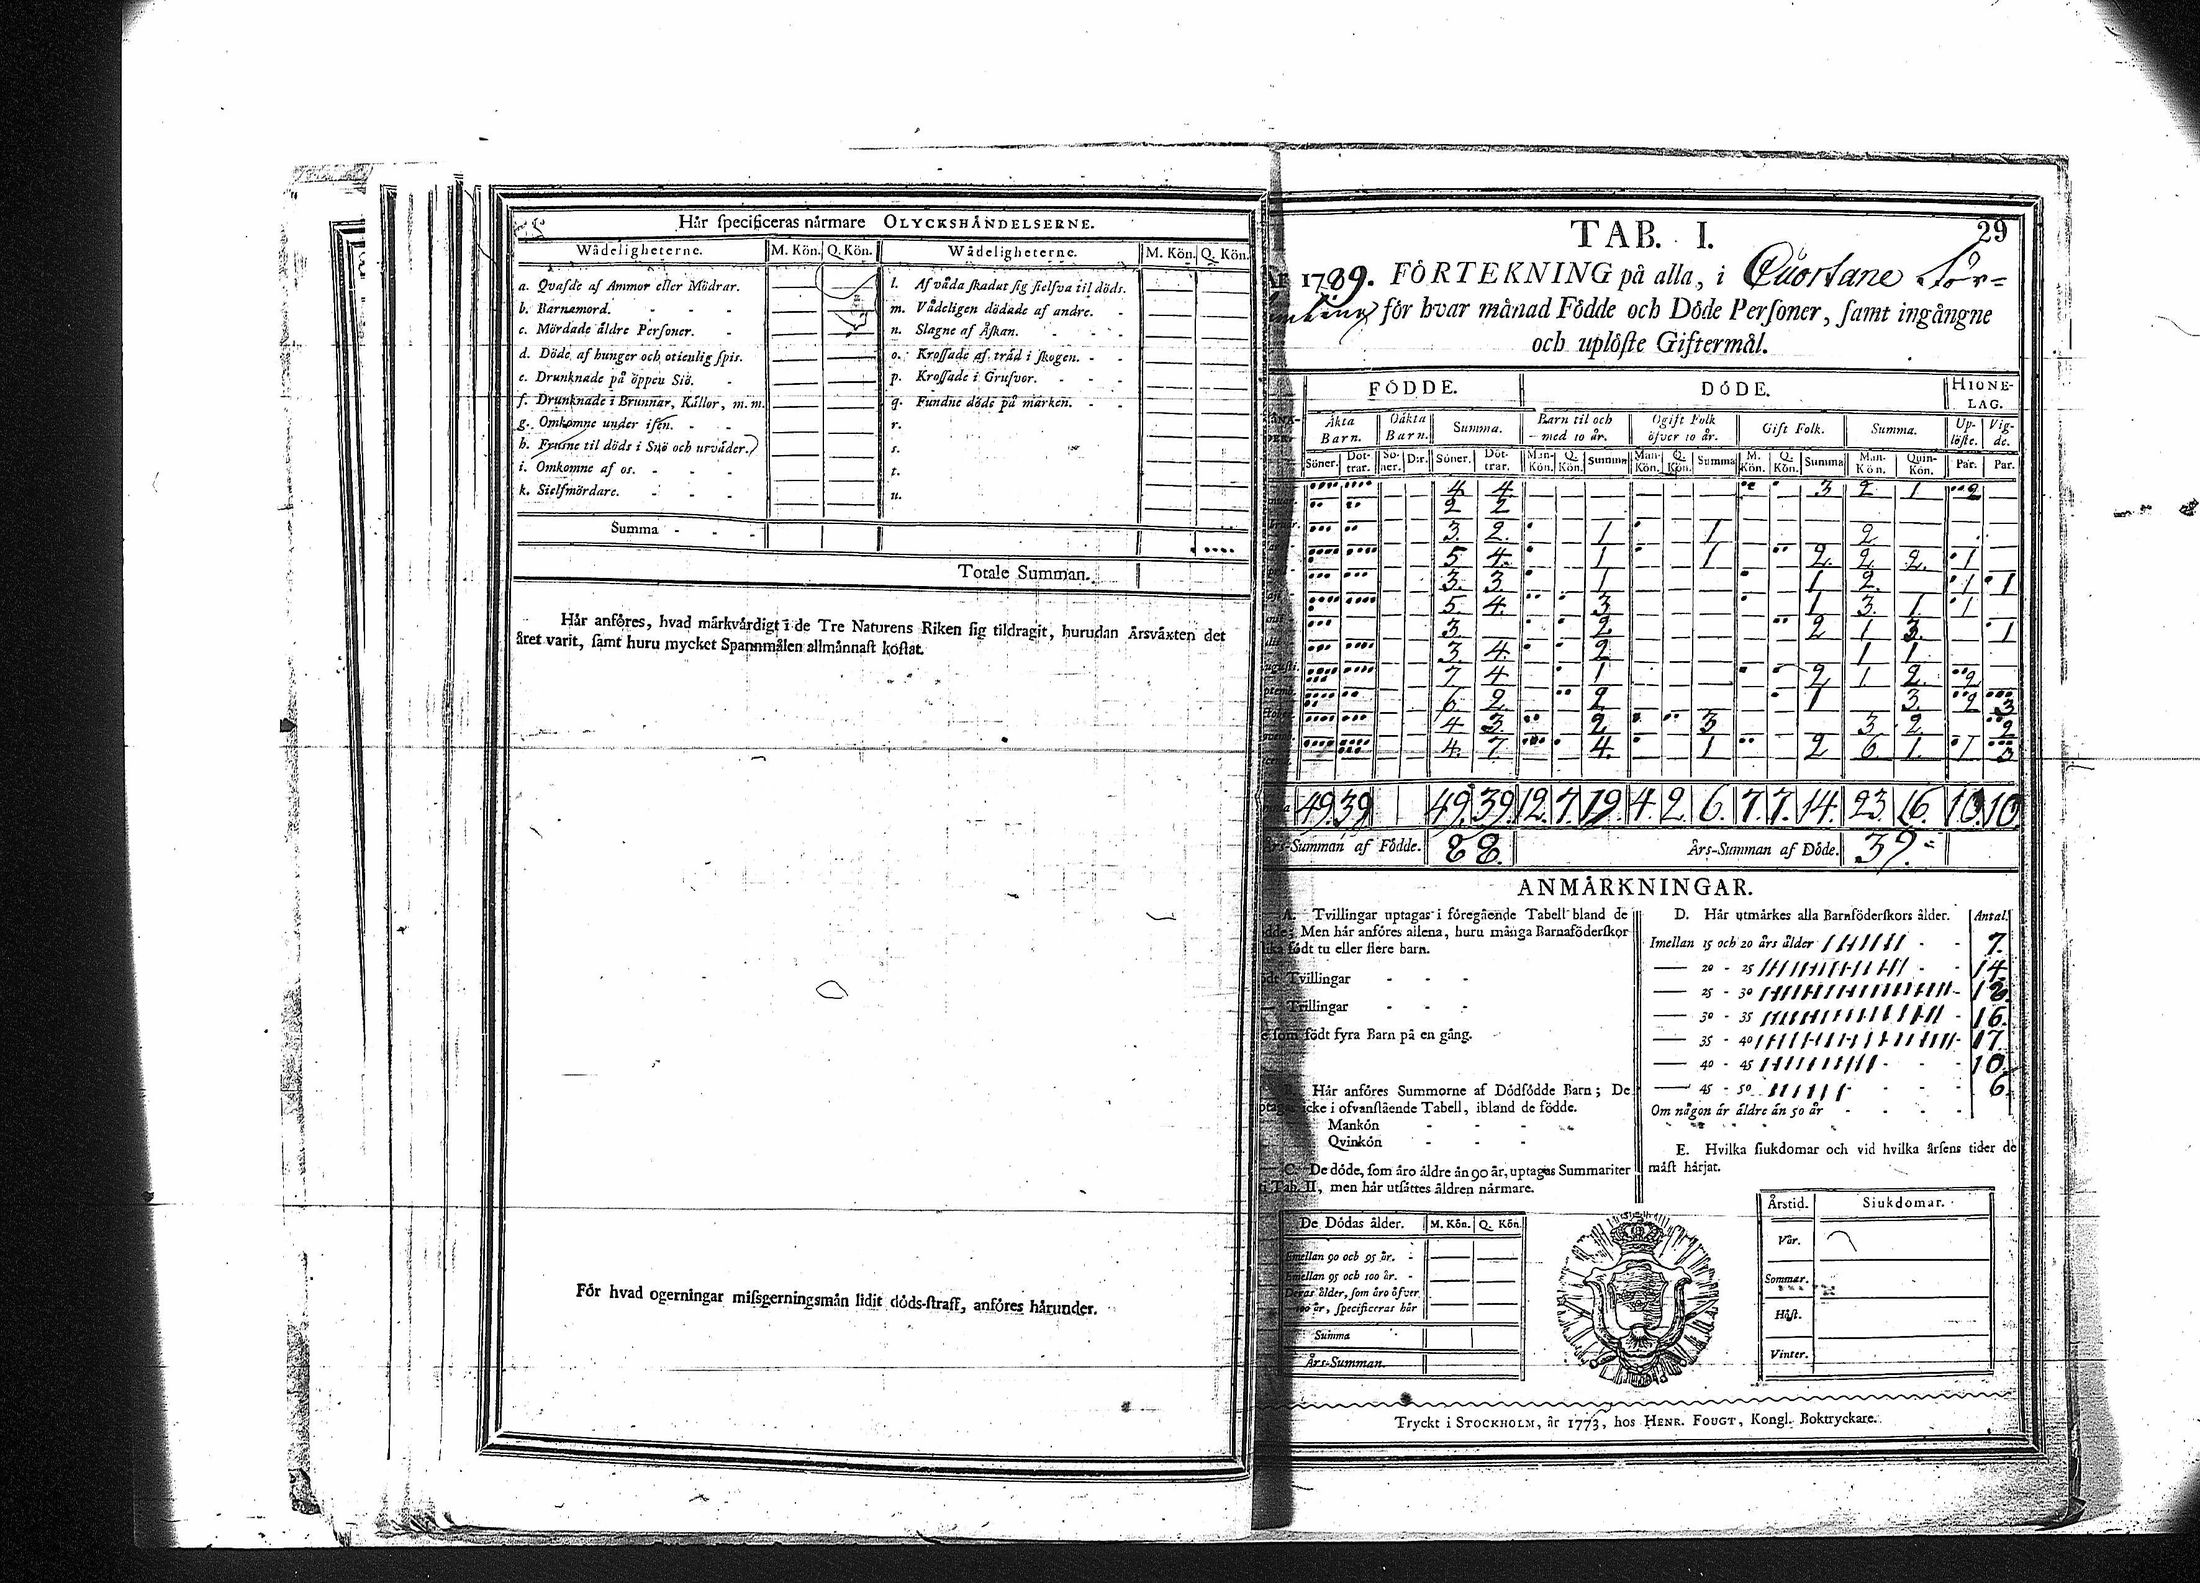 Hår specificeras nårmare OLYCKSHÅNDELSERNE.
Wådeligheterne. M. Kön. Q. Kön. Wådeligheterne. M. Kön. Q. Kön.
a. Qvafde af Ammor eller Mödrar. l. Af våda skadat sig sielfva til döds.
b. Barnamord. - - - m. Vådeligen dödade af andre. -
c. Mördade äldre Personer. - n. Slagne af Åskan. - -
d. Döde af hunger och otienlig spis. o. Krossade af träd i skogen. - -
e. Drunknade på öppen Siö. - p. Krossade i Grufvor. - - -
f. Drunknade i Brunnar, Källor, m. m. q. Fundne döde på marken. - -
g. Omkomne under isen. - - r.
h. Frusne til döds i Snö och urväder. s.
i. Omkomne af os. - - - t.
k. Sielfmördare. - - - u.
Summa - - -
Totale Summan.
Hår anföres, hvad mårkvårdigt i de Tre Naturens Riken sig tildragit, hurudan Årsvåxten det
året varit, samt huru mycket Spannmålen allmånnast kostat.
För hvad ogerningar missgerningsmån lidit döds-straff, anföres hårunder.
29
TAB. I.
År 1789. FÖRTEKNING på alla, i Quortane För=
samling för hvar månad Födde och Döde Personer, samt ingångne
och uplöste Giftermål.
FÖDDE. DÖDE. HIONE-
LAG.
Äkta Barn. Oäkta Barn. Summa. Barn til och med 10 år. Ogift Folk öfver 10 år. Gift Folk. Summa. Up-löste. Vig-de.
Söner. Döt-trar. Sö-ner. D:r. Söner. Döt-trar. Man-Kön. Q. Kön. Summa Man-Kön. Q. Kön. Summa M. Kön. Q. Kön. Summa Man-Kön. Quin-Kön. Par. Par.
4 4 3 2 1 2
2 2
3. 2. 1 1 2
5 4. 1 1 2. 2. 2. 1
3. 3. 1 1 2. 1 1
5. 4. 3 1 3. 1. 1
3. 2 2 1 3. 1
3. 4. 2 1 1
7 4 1 2 1. 2. 2
6. 2. 2 1 3. 2 3
4 3. 2 3 3 2. 2
4. 7. 4. 1 2 6. 1. 1 3
49. 39 49. 39 12. 7. 19. 4. 2. 6. 7. 7. 14. 23. 16. 10. 10.
Års-Summan af Födde. 88. Års-Summan af Döde. 39.
ANMÅRKNINGAR.
A. Tvillingar uptagas i föregående Tabell bland de
födde; Men hår anföres allena, huru många Barnaföderskor
lika födt tu eller flere barn.
födt Tvillingar - - -
— Trillingar - - -
som födt fyra Barn på en gång.
B. Hår anföres Summorne af Dödfödde Barn; De
uptagas icke i ofvanstående Tabell, ibland de födde.
Mankön - - -
Qvinkön - - -
C. De döde, som åro åldre ån 90 år, uptages Summariter
i Tab. II, men hår utsåttes åldren nårmare.
De Dödas ålder. M. Kön. Q. Kön.
Emellan 90 och 95 år. -
Emellan 95 och 100 år. -
Deras ålder, som åro öfver
100 år, specificeras hår
Summa
Års-Summan.
D. Hår utmårkes alla Barnföderskors ålder. Antal.
Imellan 15 och 20 års ålder - - 7.
— 20 - 25 - - 14
— 25 - 30 - 18.
— 30 - 35 - 16.
— 35 - 40 - 17.
— 40 - 45 - - - 10.
— 45 - 50 - - - 6.
Om någon är äldre än 50 år - - - -
E. Hvilka siukdomar och vid hvilka årsens tider de
måst hårjat.
Årstid. Siukdomar.
Vår.
Sommar.
Höst.
Vinter.
Tryckt i STOCKHOLM, år 1773, hos HENR. FOUGT, Kongl. Boktryckare.